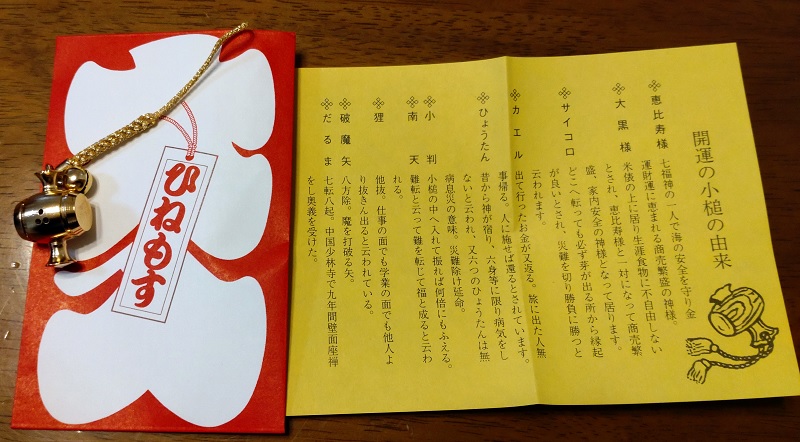 ひねもす
開運の小槌の由来
恵比寿様 七福神の一人で海の安全を守り金
運財運に恵まれる商売繁盛の神様。
大黒様 米俵の上に居り生涯食物に不自由しない
とされ、恵比寿様と一対になって商売繁
盛、家内安全の神様となって居ります。
サイコロ どこへ転っても必ず芽が出る所から縁起
が良いとされ、災難を切り勝負に勝つと
云われます。
カエル 出て行ったお金が又返る。旅に出た人無
事帰る。人に施せば還るとされています。
ひょうたん 昔から神が宿り、六身等に限り病気をし
ないと云われ、又六つのひょうたんは無
病息災の意味。災難除け延命。
小判 小槌の中へ入れて振れば何倍にもふえる。
南天 難転と云って難を転じて福と成ると云わ
れる。
狸 他抜。仕事の面でも学業の面でも他人よ
り抜きん出ると云われている。
破魔矢 八方除。魔を打破る矢。
だるま 七転八起。中国少林寺で九年間壁面座禅
をし奥義を受けた。